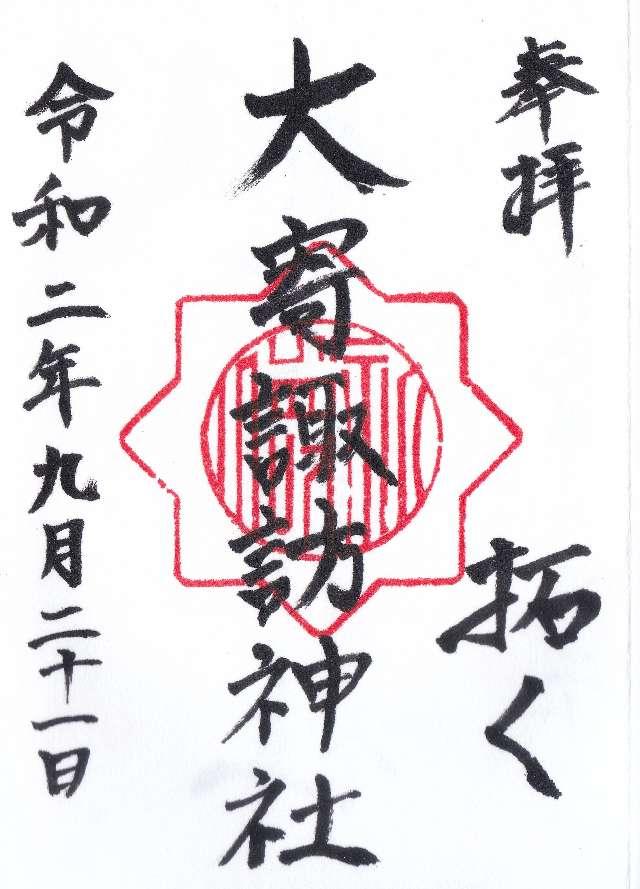 奉拝
拓く
大寄諏訪神社
令和二年九月二十一日